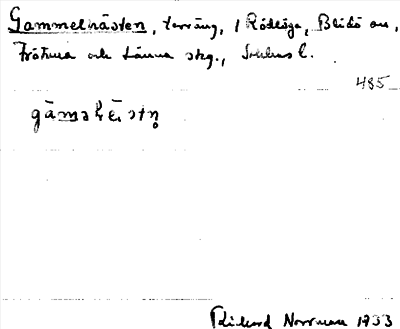 Gammelnästen, terräng, i Rödlöga, Blidö sn,
Frötuna och Länna skg., Sthlms l.
485
Richard Norrman 1933